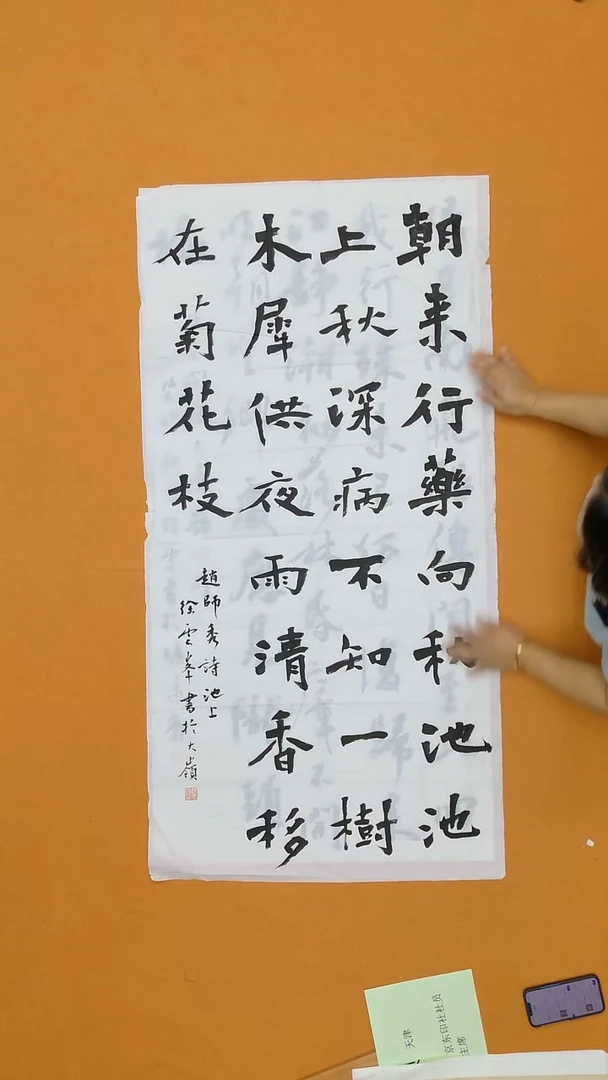 朝来行藥向秋池池
上秋深病不知一樹
木犀供夜雨清香移
在菊花枝
趙師秀詩池上
徐雲峯書於大嶺
天津
京东印社社员
主席